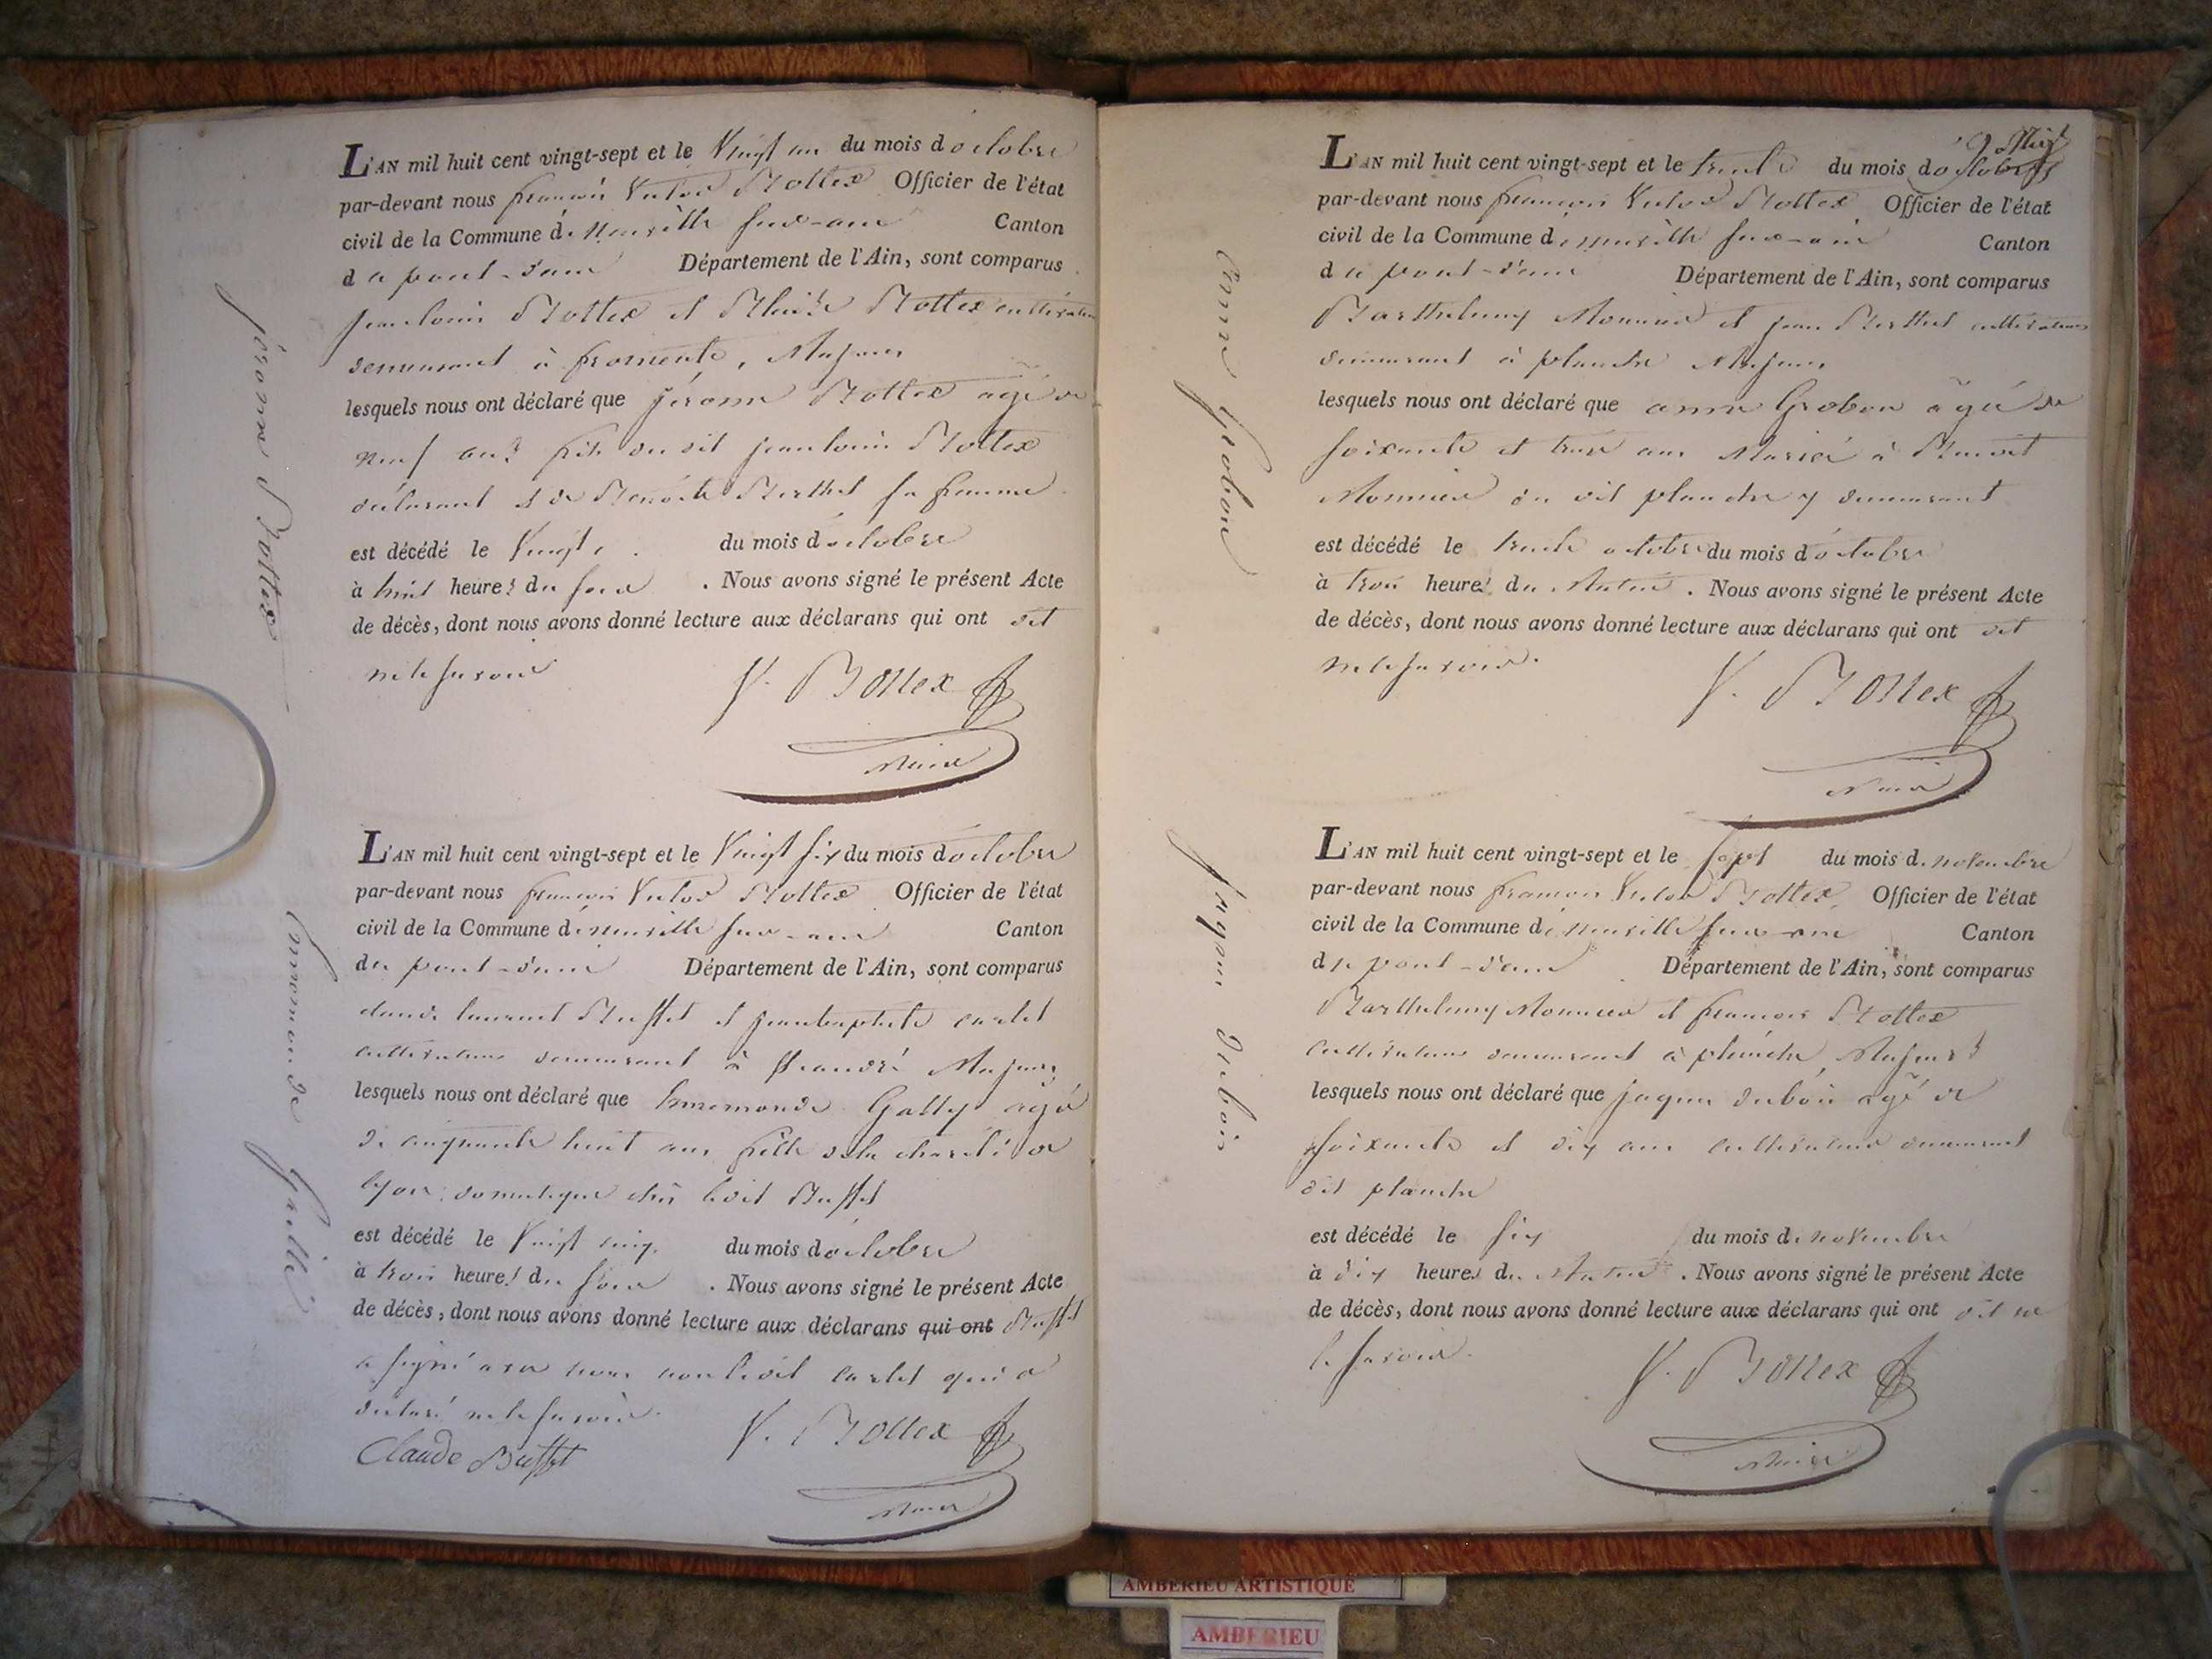 L'AN mil huit cent vingt-sept et le Vingt un du mois d octobre
par-devant nous francois Victor Bottex Officier de l'état
civil de la Commune de neuville sur-ain Canton
de pont-d'ain Département de l'Ain, sont comparus
jean louis Bottex et Bottex cultivateurs
demeurant à fromente, Majeurs
lesquels nous ont déclaré que jérome Bottex agé de
neuf ans fils du dit jean louis Bottex
déclarant et de Benoite Berthet sa femme
est décédé le Vingt du mois d octobre
à huit heures du soir . Nous avons signé le présent Acte
de décès, dont nous avons donné lecture aux déclarans qui ont dit
ne le savoir
V. Bottex
Maire
jérome Bottex
L'AN mil huit cent vingt-sept et le Vingt six du mois d octobre
par-devant nous francois Victor Bottex Officier de l'état
civil de la Commune de neuville sur-ain Canton
de pont-d'ain Département de l'Ain, sont comparus
claude laurent Buffet et jean baptiste carlet
cultivateurs demeurant à Majeurs
lesquels nous ont déclaré que Ennemonde Gally agé
de cinquante huit ans fille de la charité de
lyon, domestique chés le dit Buffet
est décédé le Vingt cinq du mois d octobre
à trois heures du soir . Nous avons signé le présent Acte
de décès, dont nous avons donné lecture aux déclarans qui ont Buffet
a signé avec nous non le dit carlet qui a
déclaré ne le savoir.
Claude Buffet V. Bottex
Maire
Ennemonde
L'AN mil huit cent vingt-sept et le trente du mois d'octobre
par-devant nous francois Victor Bottex Officier de l'état
civil de la Commune de neuville sur-ain Canton
de pont-d'ain Département de l'Ain, sont comparus
Barthelemy Monnier et jean Berthet cultivateurs
demeurant à planche Majeurs
lesquels nous ont déclaré que anne Grobon agé de
soixante et ans Mariée à Benoit
Monnier du dit planche y demeurant
est décédé le trente octobre du mois d'octobre
à trois heures du Matin . Nous avons signé le présent Acte
de décès, dont nous avons donné lecture aux déclarans qui ont dit
ne le savoir.
V. Bottex
Maire
anne Grobon
L'AN mil huit cent vingt-sept et le sept du mois de novembre
par-devant nous francois Victor Bottex Officier de l'état
civil de la Commune de neuville sur-ain Canton
de pont-d'ain Département de l'Ain, sont comparus
Barthelemy Monnier et francois Bottex
cultivateurs demeurant à planche, Majeurs
lesquels nous ont déclaré que jaques dubois agé de
soixante et dix ans cultivateur demeurant
dit planche
est décédé le six du mois de novembre
à dix heures du Matin . Nous avons signé le présent Acte
de décès, dont nous avons donné lecture aux déclarans qui ont dit ne
le savoir.
V. Bottex
Maire
jaques dubois
AMBERIEU ARTISTIQUE
AMBERIEU